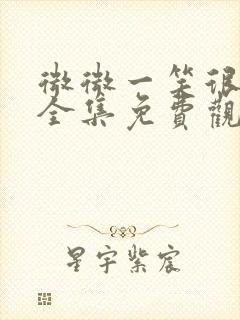 微微一笑很
全集免費觀
星宇紫宸